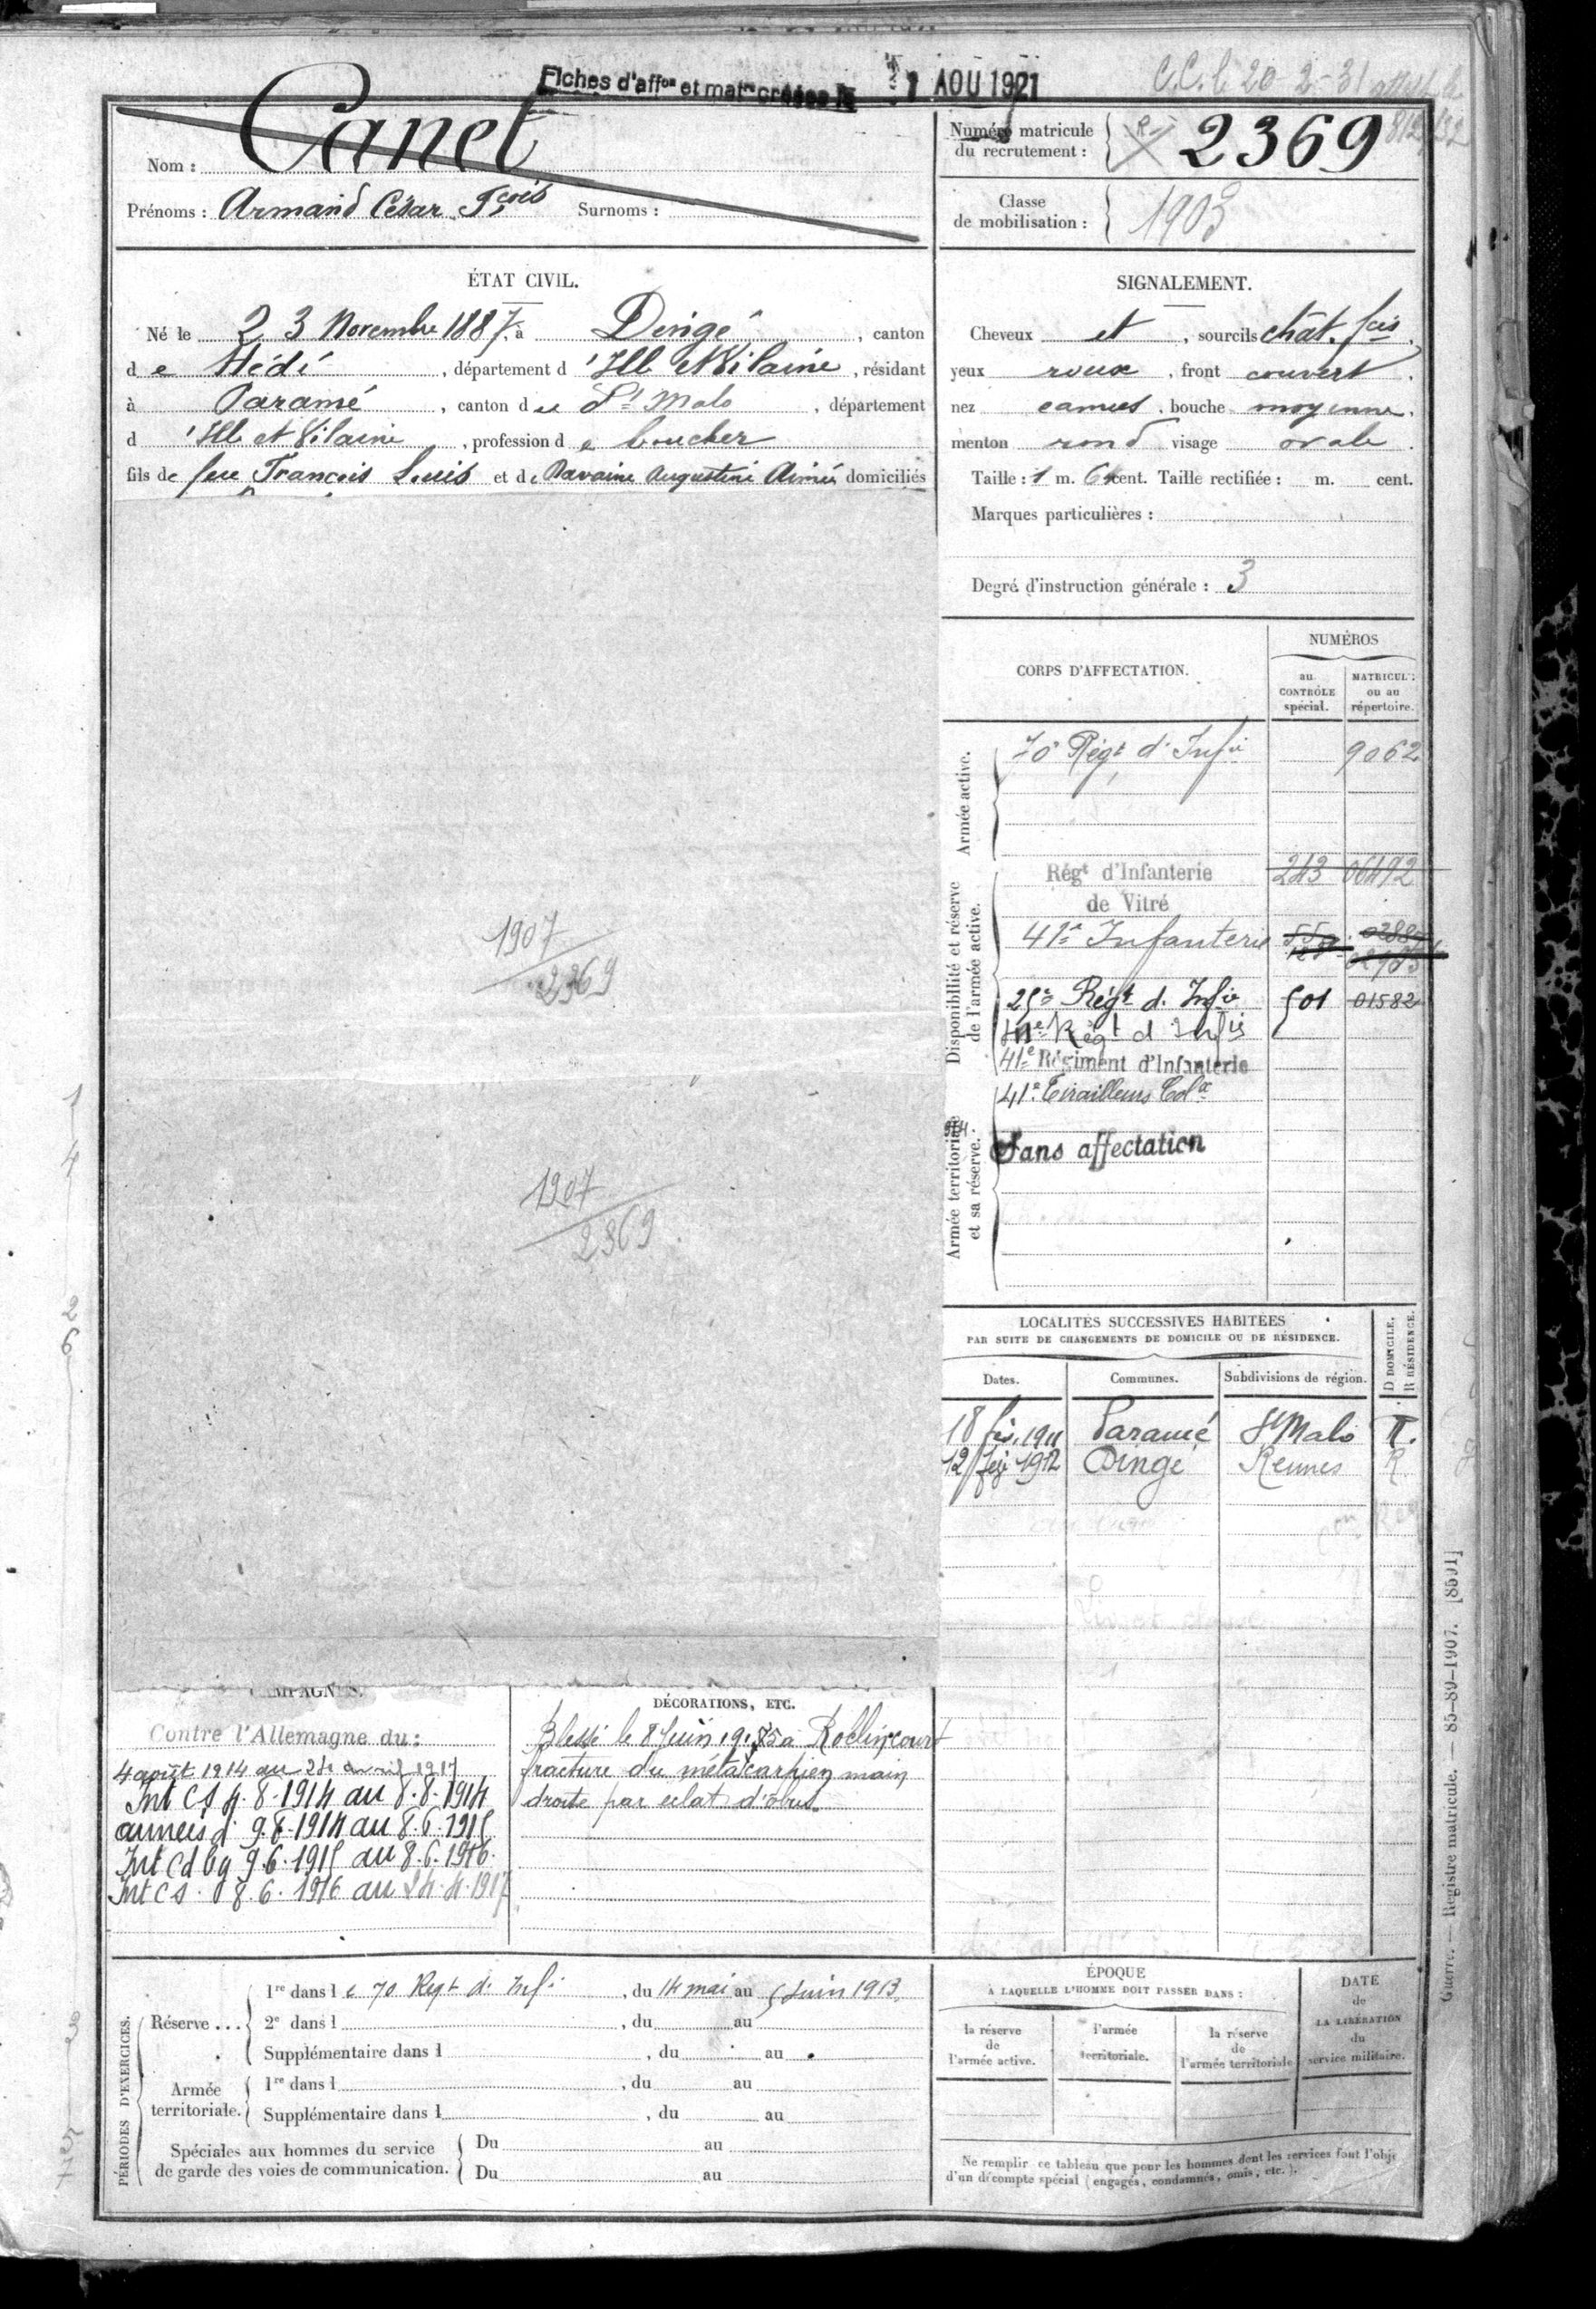 Fiches d'aff^on et mat^re créées le 1 AOU 1921
C.C. le 20-2-31
Nom : Canet
Prénoms : Armand César F^çois Surnoms :
Numéro matricule du recrutement : 2369
Classe de mobilisation : 1903
ÉTAT CIVIL.
Né le 23 Novembre 1887, à Dingé, canton
de Hédé, département d'Ille et Vilaine, résidant
à Paramé, canton de St Malo, département
d'Ille et Vilaine, profession de boucher
fils de feu François Louis et de Davaine Augustine Aimée domiciliés
1907
2369
1907
2369
SIGNALEMENT.
Cheveux et, sourcils chât. fcés.
yeux roux, front couvert.
nez camus, bouche moyenne.
menton rond visage ovale.
Taille : 1 m. 61 cent. Taille rectifiée : m. cent.
Marques particulières :
Degré d'instruction générale : 3
CORPS D'AFFECTATION.
NUMÉROS
au CONTRÔLE spécial.
MATRICULE ou au répertoire.
Armée active.
70e Régt d'Infie 9062
Disponibilité et réserve de l'armée active.
Régt d'Infanterie 243 06492
de Vitré
41e Infanterie
25e Régt d. Infie 501 01582
41e Régt d'Infie
41e Régiment d'Infanterie
41e Tirailleurs Colx
Armée territoriale et sa réserve.
Sans affectation
LOCALITÉS SUCCESSIVES HABITÉES
PAR SUITE DE CHANGEMENTS DE DOMICILE OU DE RÉSIDENCE.
Dates. Communes. Subdivisions de région. D DOMICILE. R RÉSIDENCE.
18 fév. 1911 Paramé St Malo R.
12 1912 Dingé Rennes R
CAMPAGNES.
Contre l'Allemagne du :
4 août 1914 au 24 avril 1917
Int CS 4.8.1914 au 8.8.1914
armées d 9.8.1914 au 8.6.1915
Int Cd bg 9.6.1915 au 8.6.1916.
Int CS 8.6.1916 au 24.4.1917
DÉCORATIONS, ETC.
Blessé le 8 Juin 1915 à Roclincourt
fracture du métacarpien main
droite par éclat d'obus.
PÉRIODES D'EXERCICES.
Réserve ...
1re dans le 70 Regt d'Infie, du 14 mai au 5 Juin 1913.
2e dans l , du au
Supplémentaire dans l , du au
Armée territoriale.
1re dans l , du au
Supplémentaire dans l , du au
Spéciales aux hommes du service de garde des voies de communication.
Du au
Du au
ÉPOQUE
À LAQUELLE L'HOMME DOIT PASSER DANS :
la réserve de l'armée active.
l'armée territoriale.
la réserve de l'armée territoriale
DATE de LA LIBÉRATION du service militaire.
Ne remplir ce tableau que pour les hommes dont les services font l'obje
d'un décompte spécial (engagés, condamnés, omis, etc.).
Guerre. — Registre matricule. — 85-89-1907. [8591]